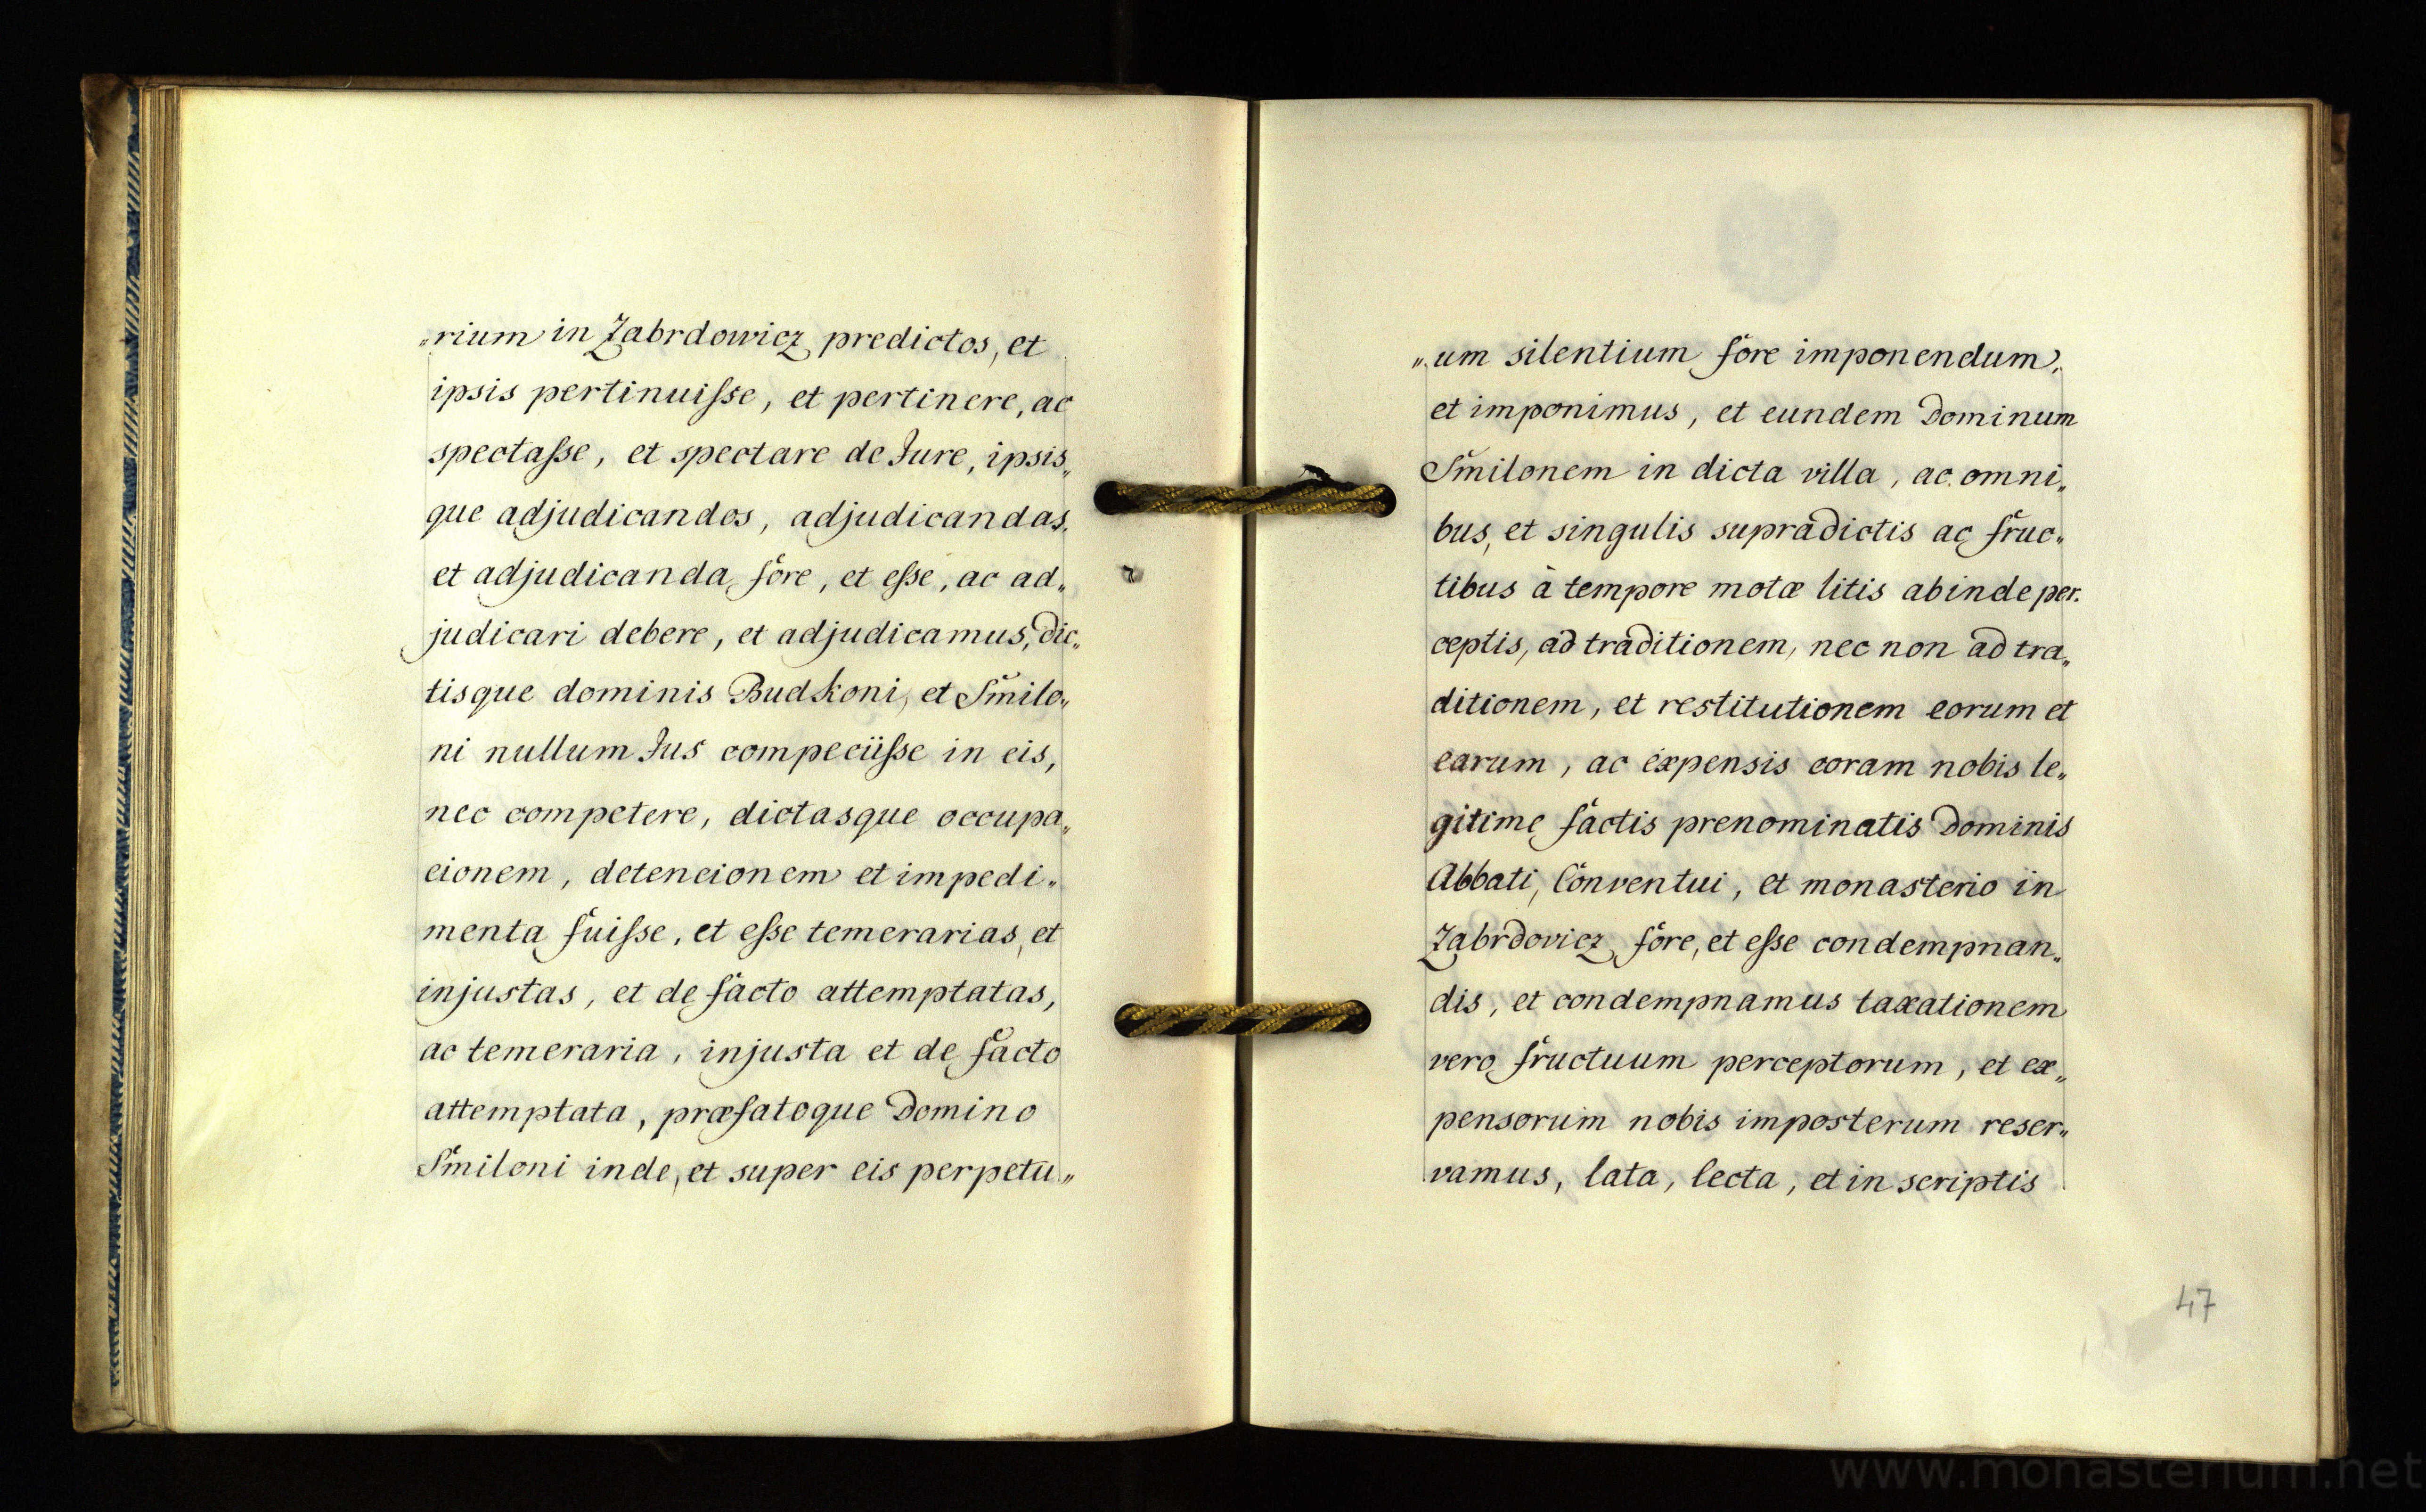 „rium in Zabrdowicz predictos, et
ipsis pertinuiſse, et pertinere, ac
spectaſse, et spectare de Jure, ipsis„
que adjudicandos, adjudicandas,
et adjudicanda fore, et eſse, ac ad„
judicari debere, et adjudicamus, dic„
tisque dominis Budkoni, et Smilo„
ni nullum Jus compeciiſse in eis,
nec competere, dictasque occupa„
cionem, detencionem et impedi„
menta fuiſse, et eſse temerarias, et
injustas, et de facto attemptatas,
ac temeraria, injusta et de facto
attemptata, præfatoque Domino
Smiloni inde, et super eis perpetu„
„um silentium fore imponendum,
et imponimus, et eundem Dominum
Smilonem in dicta villa, ac omni„
bus, et singulis supradictis ac fruc„
tibus à tempore motæ litis abinde per„
ceptis, ad traditionem, nec non ad tra„
ditionem, et restitutionem eorum et
earum, ac expensis coram nobis le„
gitime factis prenominatis Dominis
Abbati, Conventui, et monasterio in
Zabrdovicz fore, et eſse condempnan„
dis, et condempnamus taxationem
vero fructuum perceptorum, et ex„
pensorum nobis imposterum reser„
vamus, lata, lecta, et in scriptis
47
www.monasterium.net